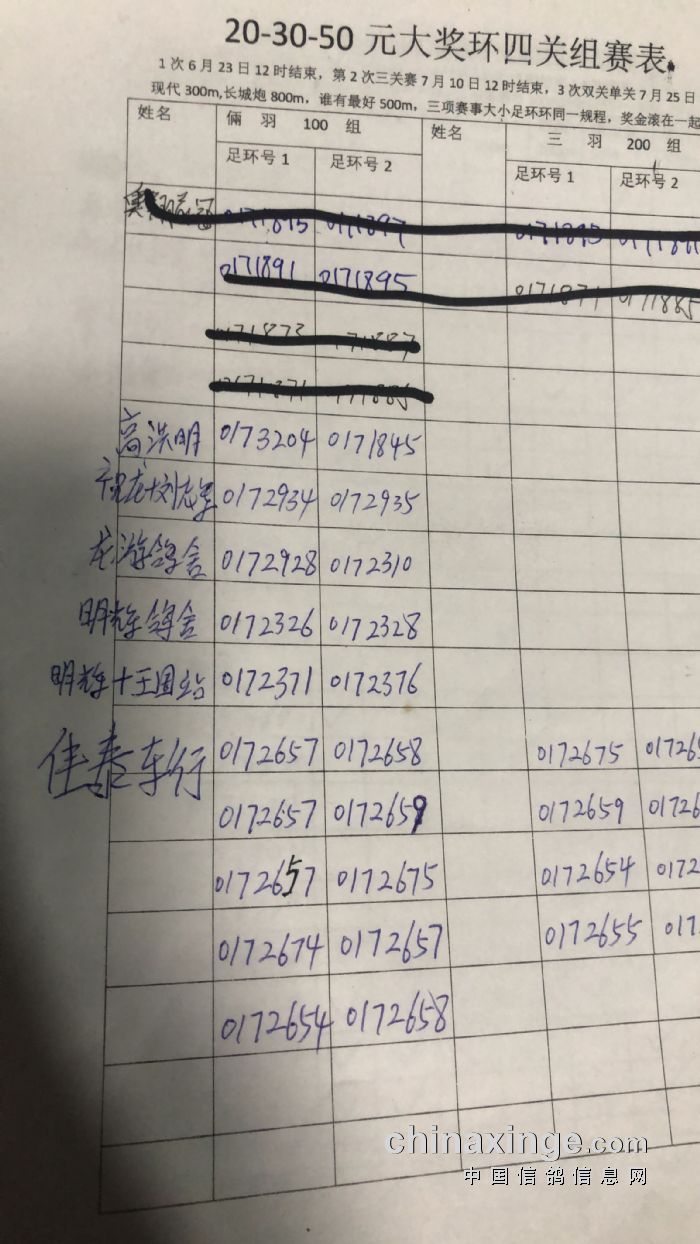 20-30-50 元大奖环四关组赛表
1 次 6 月 23 日 12 时结束，第 2 次三关赛 7 月 10 日 12 时结束，3 次双关单关 7 月 25 日
现代 300m,长城炮 800m，谁有最好 500m，三项赛事大小足环环同一规程，奖金滚在一起
姓名 俩 羽 100 组 姓名 三 羽 200 组
足环号 1 足环号 2 足环号 1 足环号 2
0171891 0171895 0171871 0171885
高洪明 0173204 0171845
0172934 0172935
龙游鸽舍 0172928 0172310
明辉鸽舍 0172326 0172328
明辉十王国 0172371 0172376
佳泰车行 0172657 0172658 0172675 017265
0172657 0172659 0172659 01726
0172657 0172675 0172654 0172
0172674 0172657 0172655 017
0172654 0172658
chinaxinge.com
中国信鸽信息网